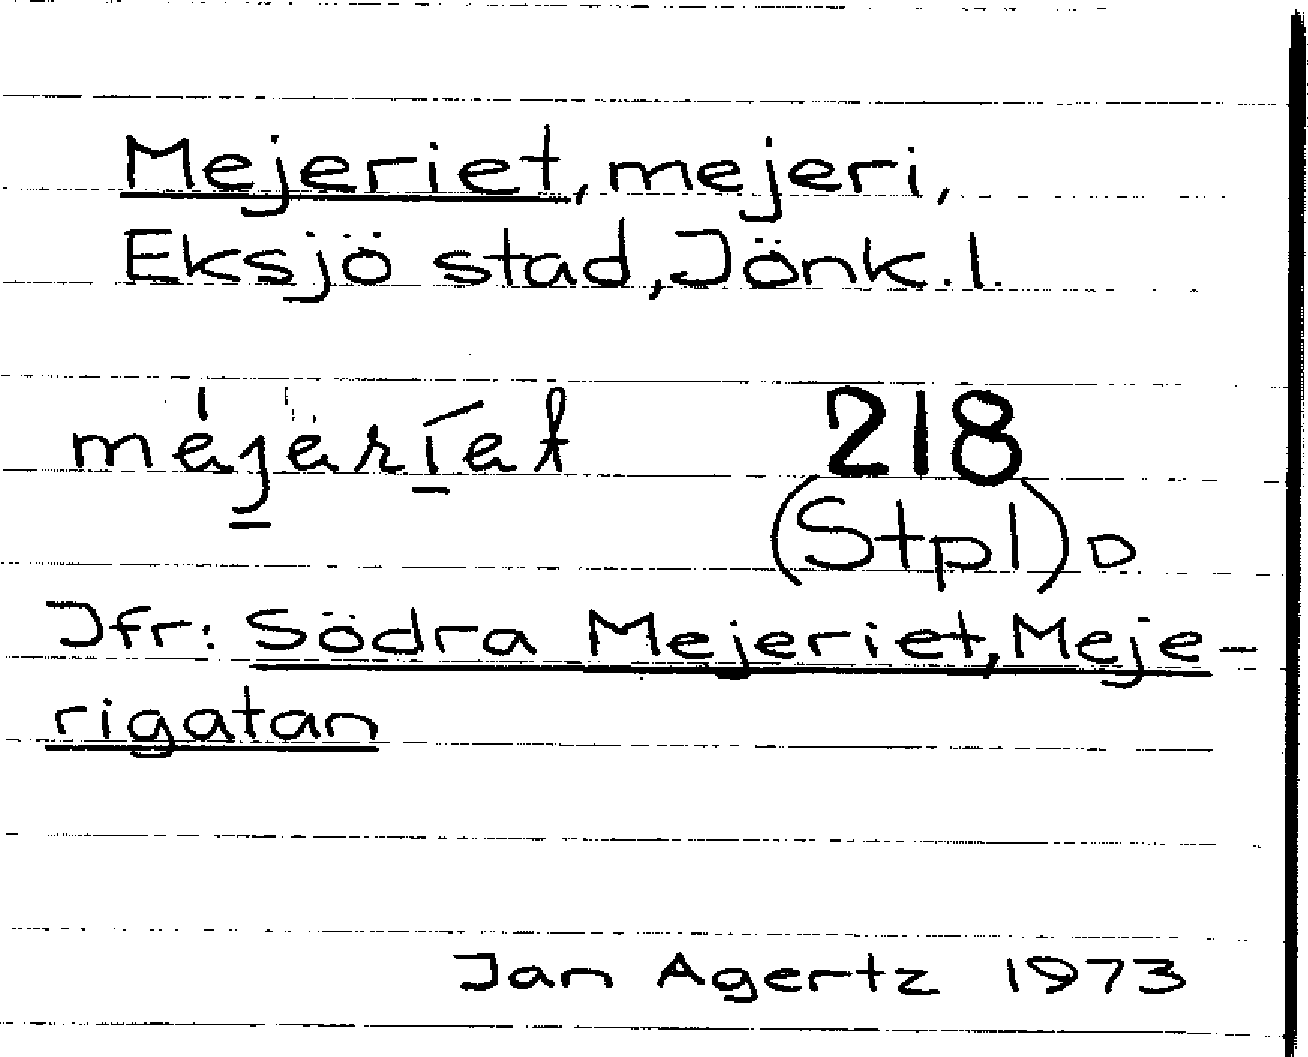 Mejeriet, mejeri,
Eksjö stad, Jönk. l.
mejeriet 218
(Stpl) D
Jfr: Södra Mejeriet, Meje-
rigatan
Jan Agertz 1973